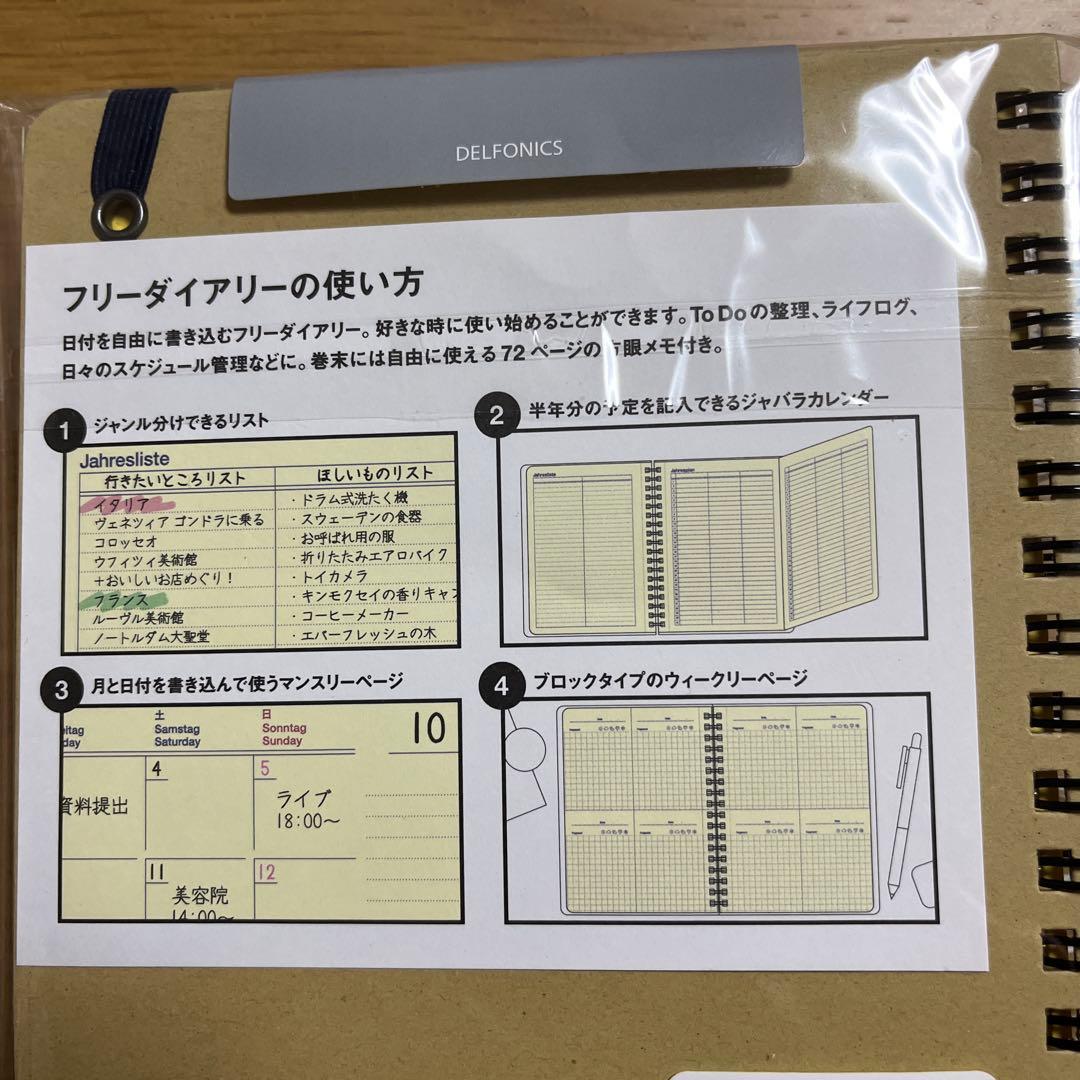 DELFONICS
フリーダイアリーの使い方
日付を自由に書き込むフリーダイアリー。好きな時に使い始めることができます。To Doの整理、ライフログ、
日々のスケジュール管理などに。巻末には自由に使える72ページの方眼メモ付き。
1 ジャンル分けできるリスト
Jahresliste
行きたいところリスト ほしいものリスト
イタリア ・ドラム式洗たく機
ヴェネツィア ゴンドラに乗る ・スウェーデンの食器
コロッセオ ・お呼ばれ用の服
ウフィツィ美術館 ・折りたたみエアロバイク
+おいしいお店めぐり! ・トイカメラ
フランス ・キンモクセイの香りキャン
ルーヴル美術館 ・コーヒーメーカー
ノートルダム大聖堂 ・エバーフレッシュの木
2 半年分の予定を記入できるジャバラカレンダー
Jahresliste
Jahresplan
3 月と日付を書き込んで使うマンスリーページ
土 日 10
eitag Samstag Sonntag
day Saturday Sunday
4 5
資料提出 ライブ
18:00〜
11 12
美容院
14:00〜
4 ブロックタイプのウィークリーページ